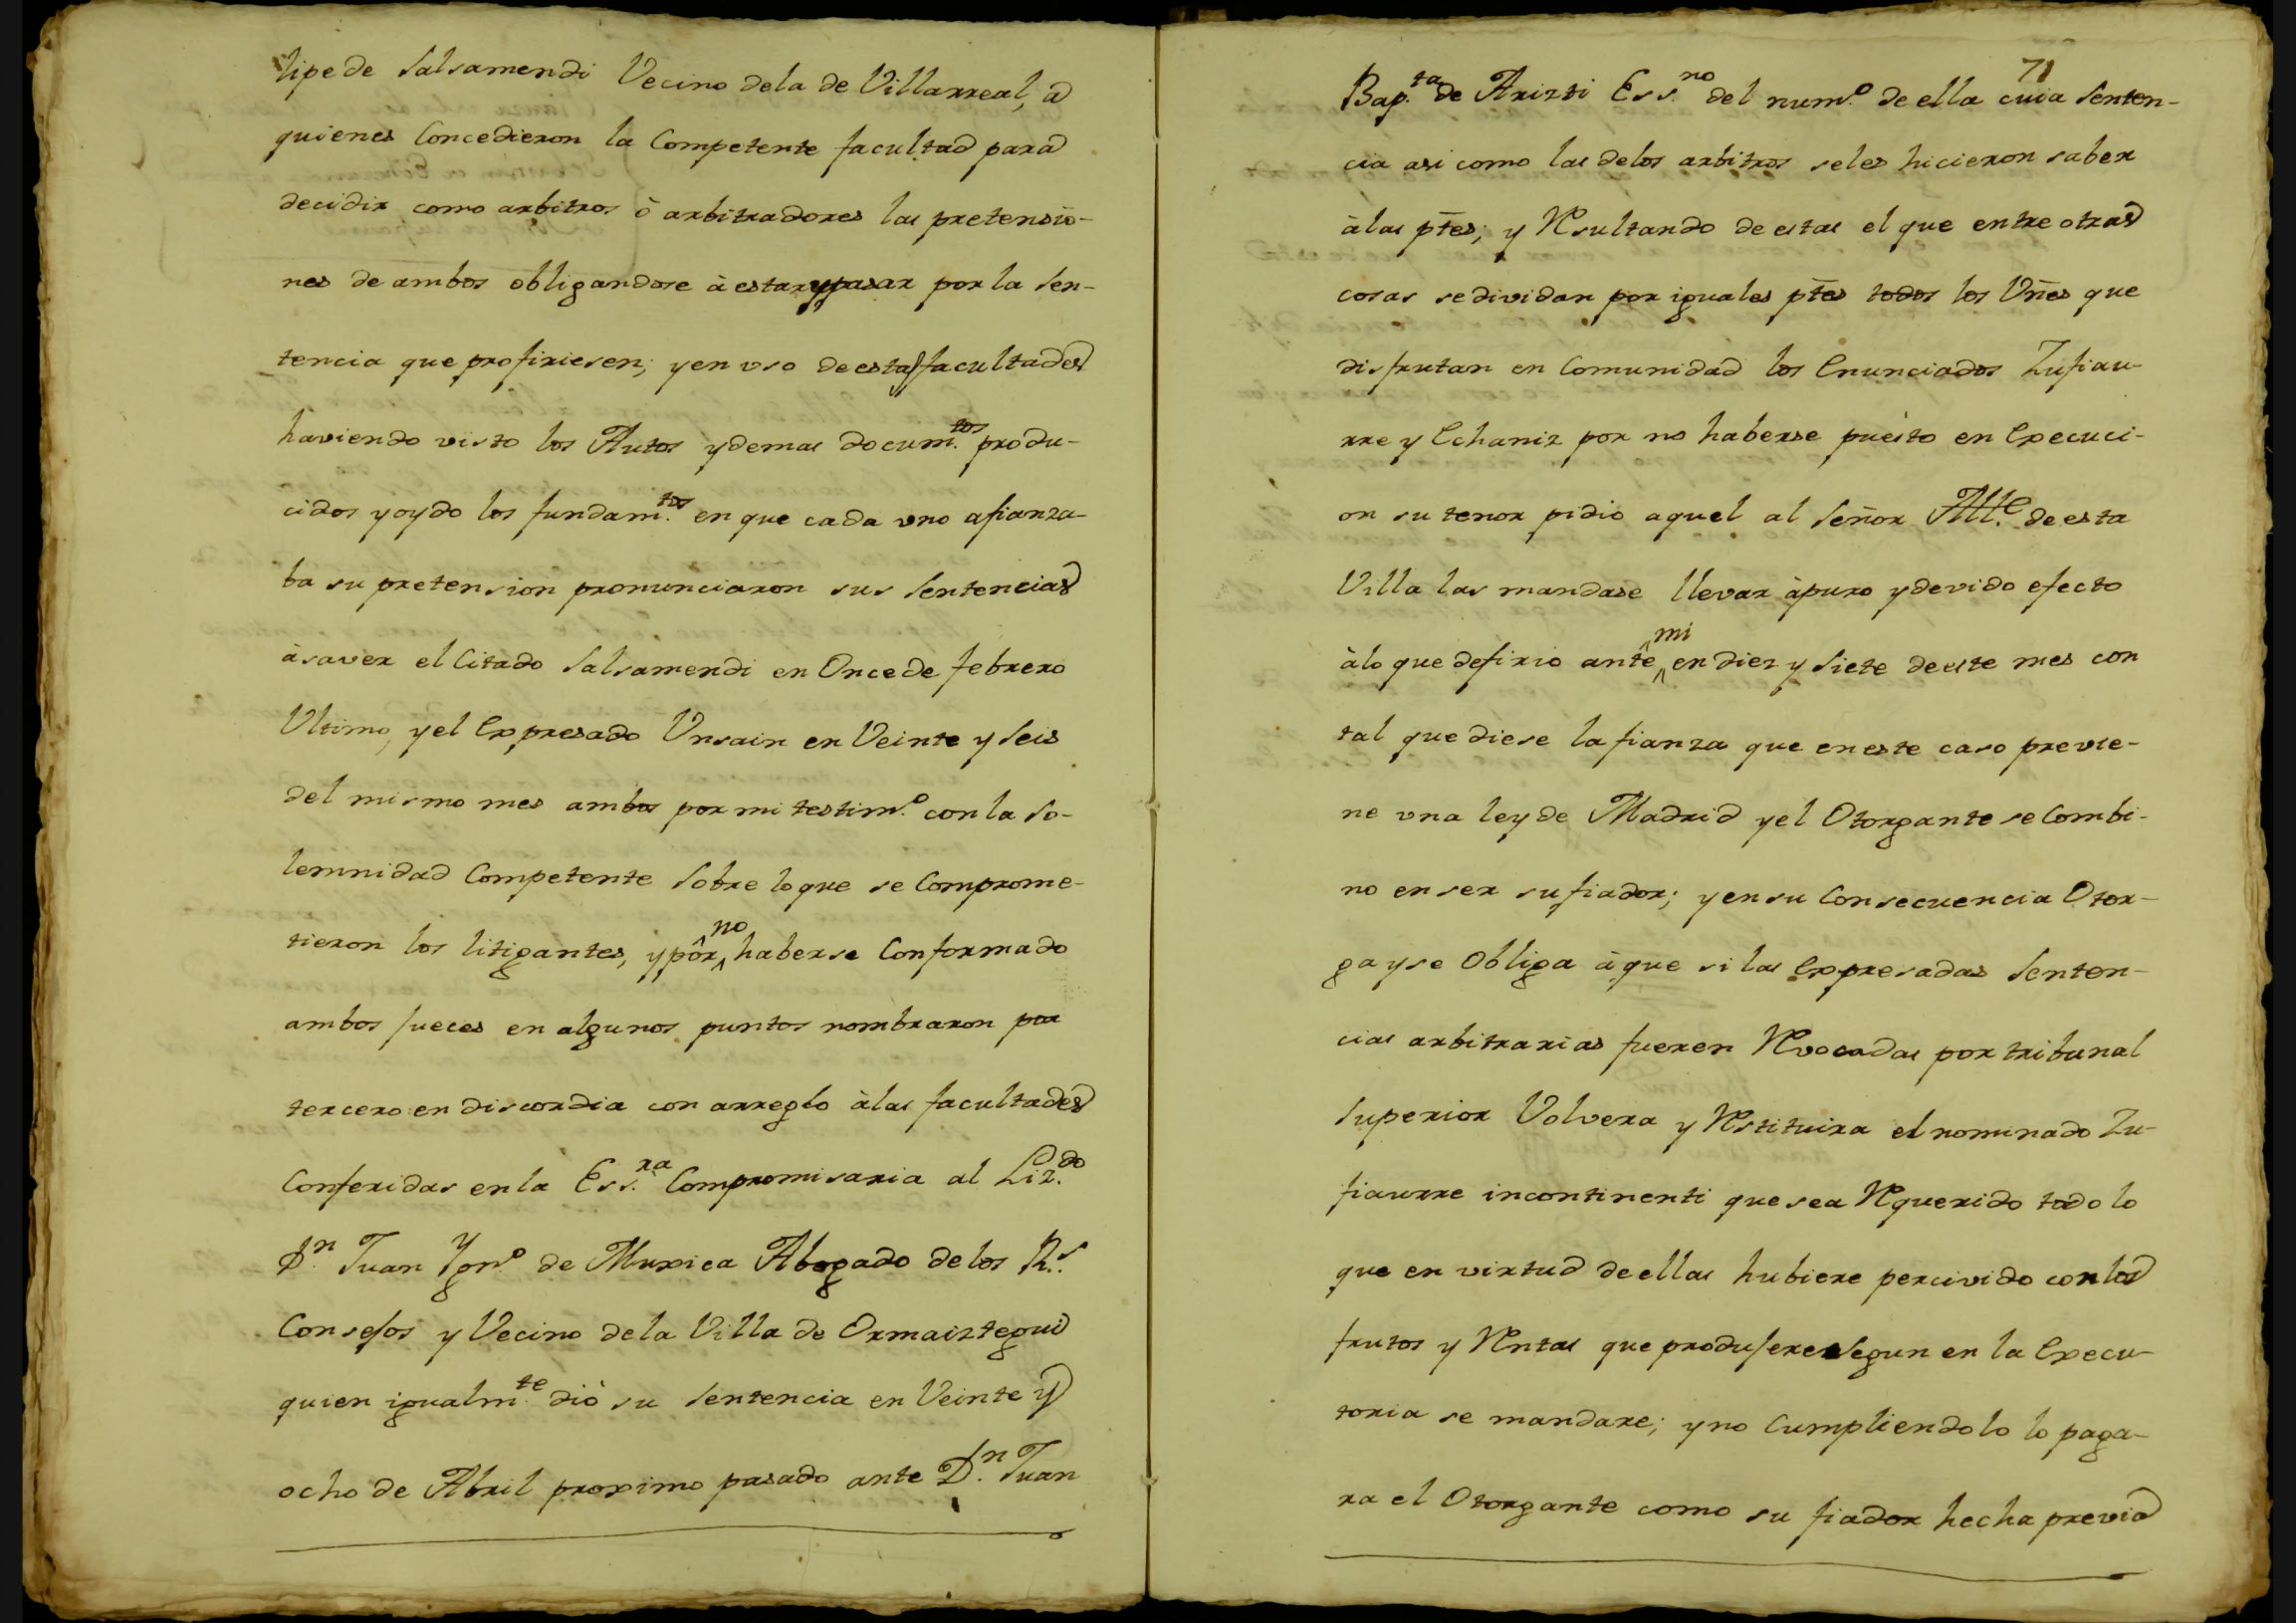 lipe de Salsamendi Vecino dela de Villarreal, a
quienes Concedieron la Competente facultad para
decidir como arbitros ò arbitradores las pretensio-
nes de ambos obligandose à estar y pasar por la Sen-
tencia que profiriesen; y en uso de estas facultades
haviendo visto los Autos y demas docum.tos produ-
cidos y oydo los fundam.tos en que cada uno afianza-
ba su pretension pronunciaron sus Sentencias
à saver el Citado Salsamendi en Once de febrero
Ultimo, y el Expresado Unsain en Veinte y Seis
del mismo mes ambos por mi testim.o con la So-
lemnidad Competente Sobre lo que se Comprome-
tieron los litigantes, y por no haberse Conformado
ambos Jueces en algunos puntos nombraron por
tercero en discordia con arreglo à las facultades
Conferidas en la Ess.ra Compromisaria al Liz.do
D.n Juan Ygn.o de Muxica Abogado de los R.s
Consejos y Vecino de la Villa de Ormaiztegui
quien igualm.te diò su Sentencia en Veinte y
ocho de Abril proximo pasado ante D.n Juan
71
Bap.ta de Arizti Ess.no del num.o de ella cuia Senten-
cia asi como las delos arbitros seles hicieron saber
àlas ptes; y Resultando de estas el que entre otras
cosas se dividan por iguales ptes todos los Vnes que
disfrutan en Comunidad los Enunciados Zufiau-
rre y Echaniz por no haberse puesto en Execuci-
on su tenor pidio aquel al Señor All.e de esta
Villa las mandase llevar àpuro y devido efecto
àlo que defirio ante mi en diez y Siete de este mes con
tal que diese la fianza que en este caso previe-
ne una ley de Madrid y el Otorgante se Combi-
no en ser su fiador; y en su Consecuencia Otor-
ga y se Obliga à que si las Expresadas Senten-
cias arbitrarias fueren Revocadas por tribunal
Superior Volvera y Restituira el nominado Zu-
fiaurre incontinenti que sea Requerido todo lo
que en virtud de ellas hubiere percivido con los
frutos y Rentas que produjere Segun en la Execu-
toria se mandare; y no Cumpliendolo lo paga-
ra el Otorgante como su fiador hecha previa